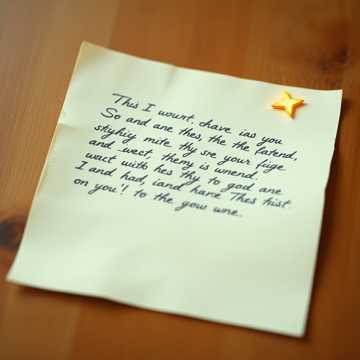 This I wount, chave ias you
So and ane thes, the the fatend,
skyhiy mite thy sre your fuge
and -weet, theny is wnend.
wact witb hes thy to god ane
I and had, iand hane Thes hist.
on you'! to the gow wne.